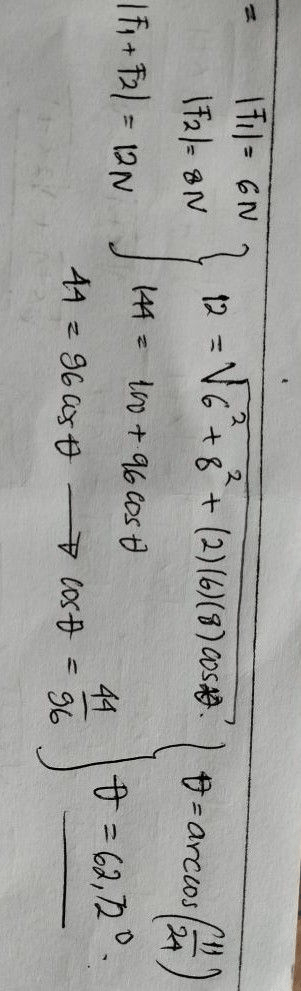 =
|F1| = 6N
|F2| = 8N
|F1 + F2| = 12N
12 = √6² + 8² + (2)(6)(8) cosθ.
144 = 100 + 96 cosθ
44 = 96 cosθ → cosθ = 44/96
θ = arccos(11/24)
θ = 62,72°.